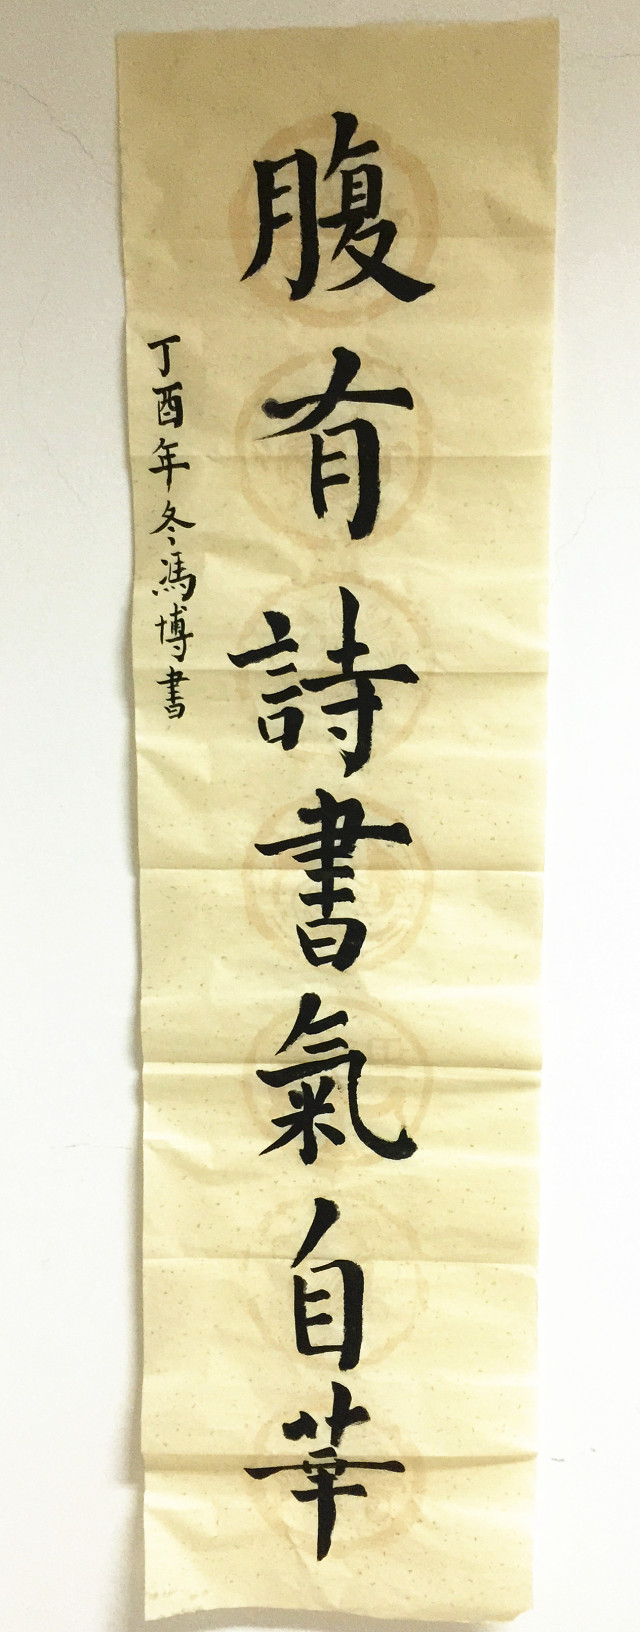 腹有詩書氣自華
丁酉年冬馮博書